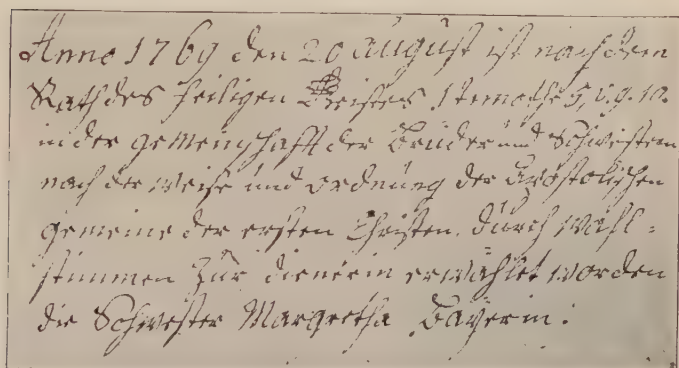 Anno 1769 den 20 august ist nach dem
Rath des heiligen Geistes 1 temothe 5, v. 9. 10.
in der gemeinschafft der Brüder und Schwestern
nach der weise und ordnung der apostolischen
gemeine der ersten Christen. durch wahl=
stimmen zur dienerin erwählet worden
die Schwester Margretha Bayerin.